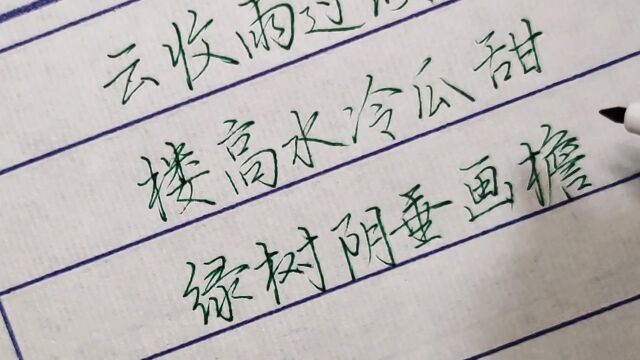 云收雨过
楼高水冷瓜甜
绿树阴垂画檐